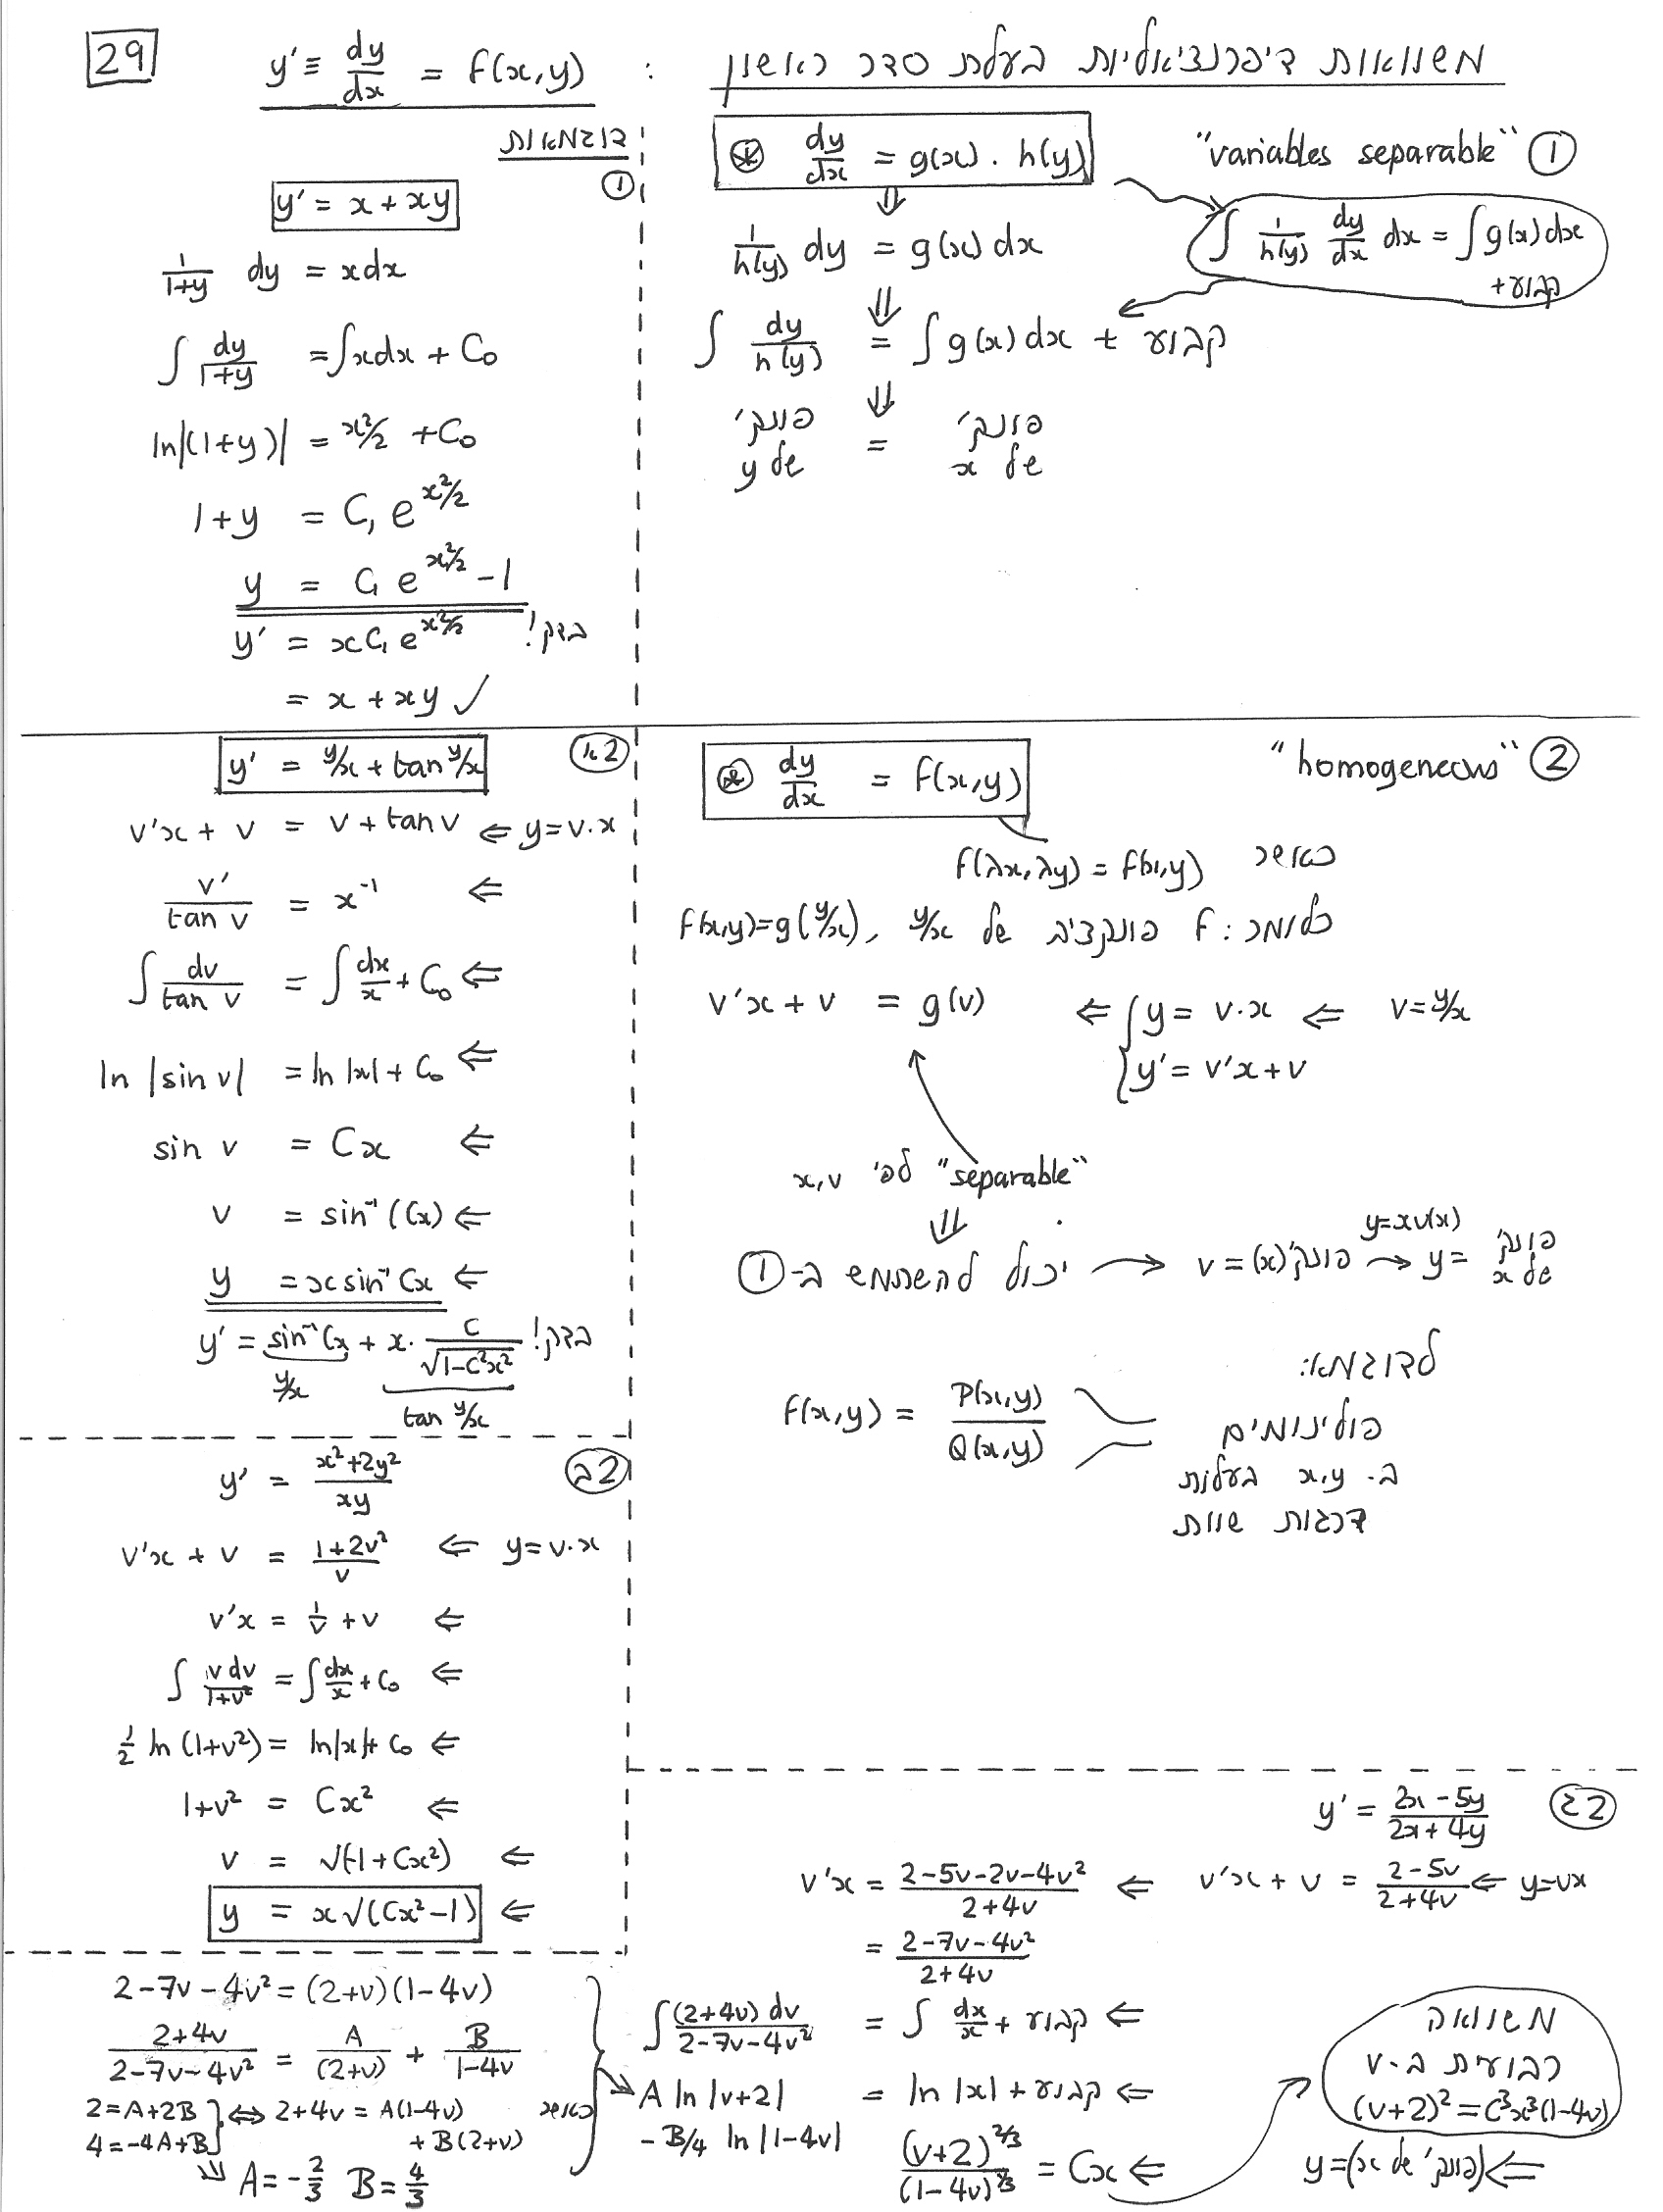 29
משוואות דיפרנציאליות בעלת סדר ראשון : y' ≡ dy/dx = f(x,y)
① "variables separable"
⊛ dy/dx = g(x) . h(y)
∫ 1/h(y) dy/dx dx = ∫g(x)dx + קבוע
⇓
1/h(y) dy = g(x) dx
⇓
∫ dy/h(y) = ∫ g(x) dx + קבוע
⇓
פונק' של y = פונק' של x
דוגמאות
①
y' = x + xy
1/(1+y) dy = xdx
∫ dy/(1+y) = ∫xdx + C₀
ln|(1+y)| = x²/2 + C₀
1+y = C₁ e^(x²/2)
y = C₁ e^(x²/2) - 1
y' = xC₁e^(x²/2) בדק!
= x + xy ✓
② "homogeneous"
⊛ dy/dx = f(x,y)
כאשר f(λx,λy) = f(x,y)
כלומר: f פונקציה של y/x , f(x,y)=g(y/x)
v=y/x ⇐ { y = v·x ⇐ v'x + v = g(v)
{ y' = v'x+v
"separable" לפי x,v
⇓
יכול להשתמש ב-① → v = פונק'(x) → y = פונק' של x
y=xv(x)
לדוגמא:
f(x,y) = P(x,y)/Q(x,y)
פולינומים
ב- x,y בעלות
דרגות שוות
2א
y' = y/x + tan y/x
v'x + v = v + tan v ⇐ y=v.x
v'/tan v = x⁻¹ ⇐
∫ dv/tan v = ∫ dx/x + C₀ ⇐
ln |sin v| = ln |x| + C₀ ⇐
sin v = Cx ⇐
v = sin⁻¹(Cx) ⇐
y = x sin⁻¹ Cx ⇐
y' = sin⁻¹ Cx + x. C/√(1-C²x²) בדק!
y/x
tan y/x
2ב
y' = (x²+2y²)/xy
v'x + v = (1+2v²)/v ⇐ y=v.x
v'x = 1/v + v ⇐
∫ v dv/(1+v²) = ∫ dx/x + C₀ ⇐
1/2 ln (1+v²) = ln|x| + C₀ ⇐
1+v² = Cx² ⇐
v = √(-1+Cx²) ⇐
y = x√(Cx²-1) ⇐
2ג
y' = (2x-5y)/(2x+4y)
y=vx ⇐ v'x + v = (2-5v)/(2+4v)
⇐ v'x = (2-5v-2v-4v²)/(2+4v)
= (2-7v-4v²)/(2+4v)
∫ (2+4v) dv/(2-7v-4v²) = ∫ dx/x + קבוע ⇐
A ln |v+2| - B/4 ln |1-4v| = ln |x| + קבוע ⇐
(v+2)^(2/3)/(1-4v)^(1/3) = Cx ⇐
משוואה
רבועית ב-v
(v+2)² = C³x³(1-4v)
y=(פונק' של x) ⇐
2-7v-4v² = (2+v)(1-4v)
(2+4v)/(2-7v-4v²) = A/(2+v) + B/(1-4v)
כאשר
2=A+2B
4=-4A+B
⇔ 2+4v = A(1-4v)
+ B(2+v)
⇘ A = -2/3 B = 4/3